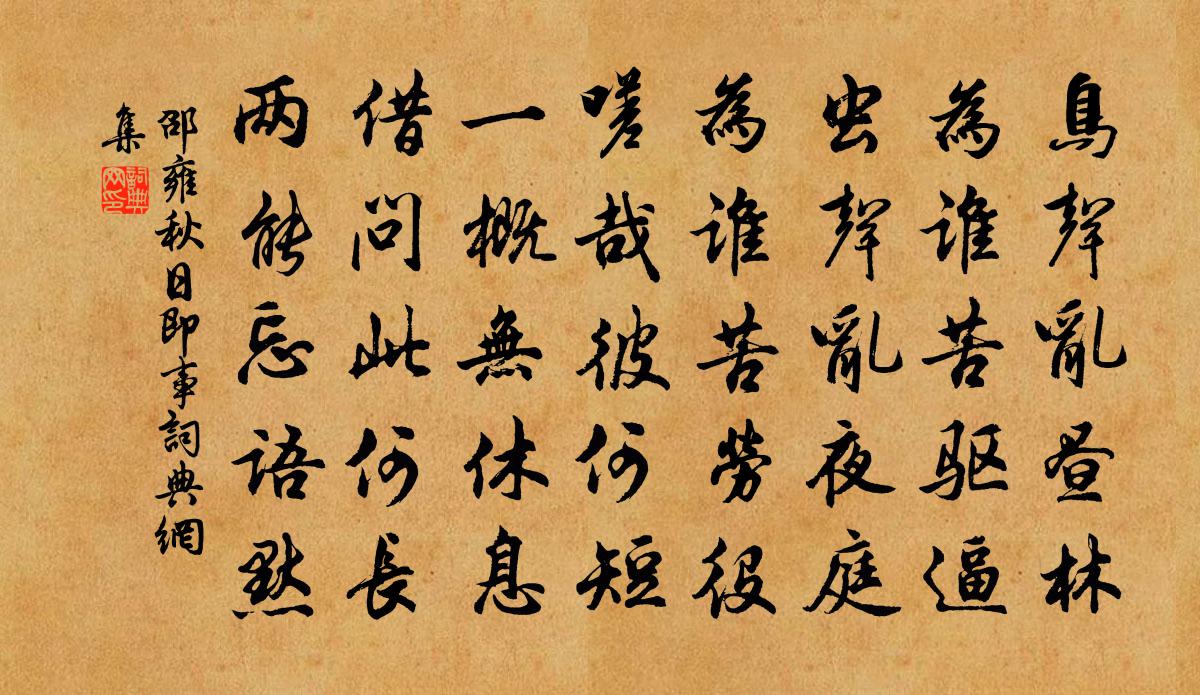 鳥聲亂晝林
為誰苦驅逼
虫聲亂夜庭
為誰苦勞役
嗟哉彼何短
一概無休息
借問此何長
两能忘語默
邵雍秋日即事詞典網
集
詞典網印